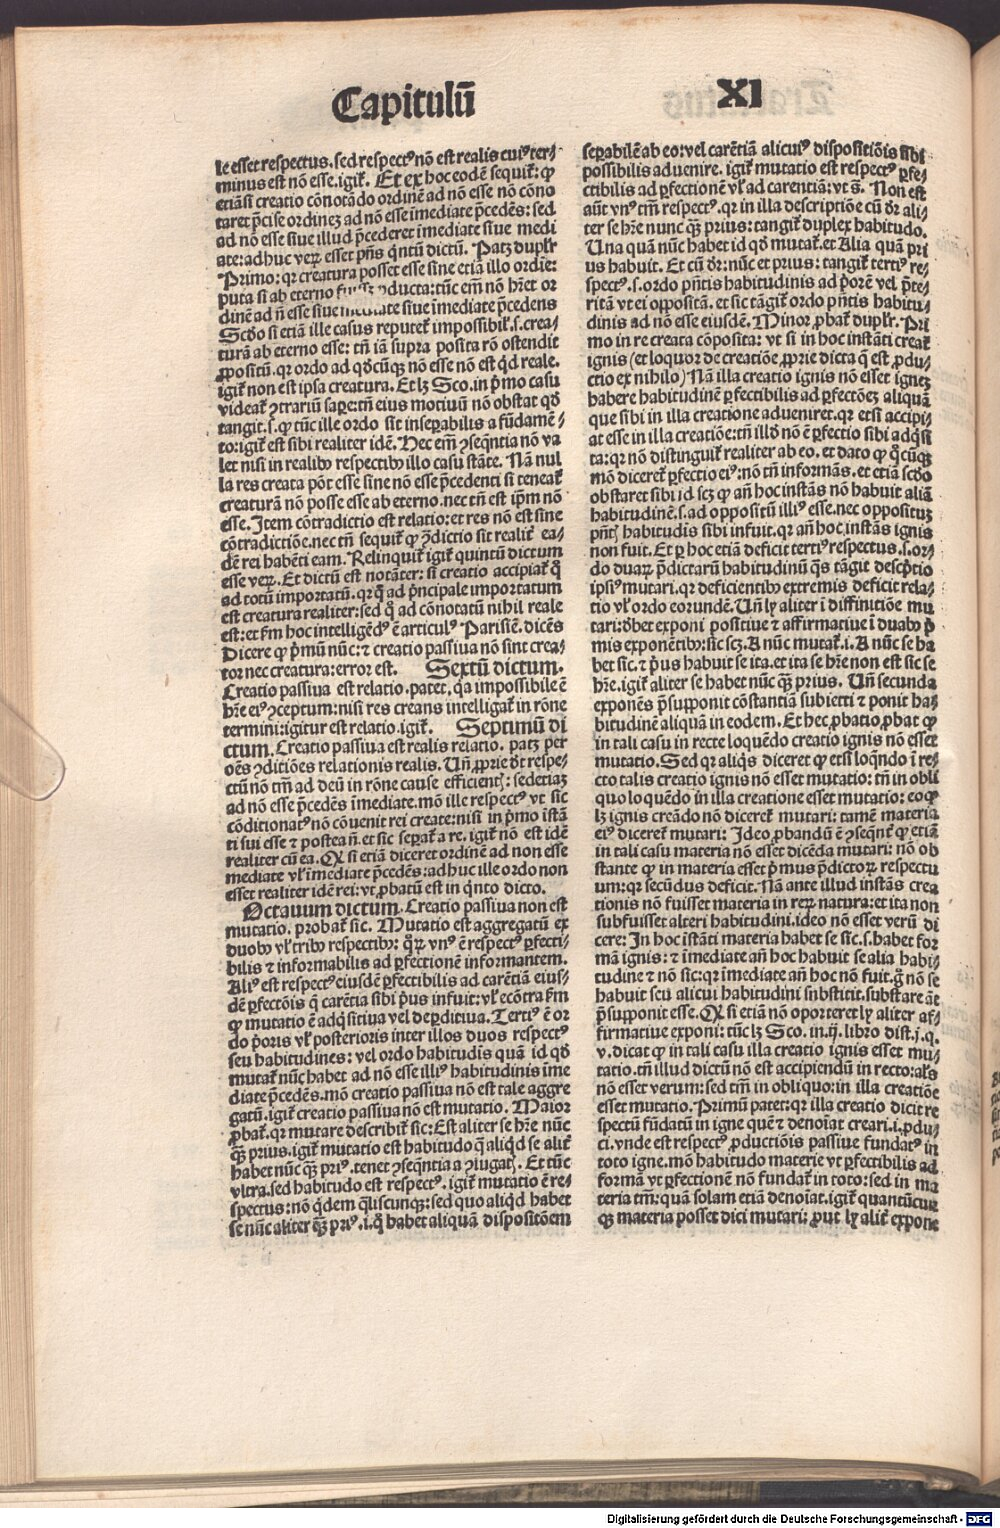 Capitulū XI
le esset respectus. sed respectꝰ nō est realis cuiꝰ ter⸗
minus est nō esse. igit̄. Et ex hoc eodē sequit̄: ꝙ
etiā si creatio cōnotādo ordinē ad nō esse nō cōno
taret p̄cise ordinez ad nō esse īmediate p̄cedēs: sed
ad nō esse siue illud p̄cederet īmediate siue medi
ate: adhuc veꝝ esset pn̄s qͥntū dictū. Patz duplr̄
Primo: qꝛ creatura posset esse sine etiā illo ordie:
puta si ab eterno ꝓducta: tūc em̄ nō hr̄et or
dinē ad n̄ esse siue siue īmediate p̄cedens
Scd̓o si etiā ille casus reputet̄ impossibil̓. s. crea⸗
turā ab eterno esse: tn̄ iā supra posita rō ostendit
ꝓpositū. qꝛ ordo ad qd̓cūqꝫ nō esse nō est qͥd reale.
igit̄ non est ipsa creatura. Et lꝫ Sco. in pͥmo casu
videat̄ ꝯtrariū saꝑe: tn̄ eius motiuū nō obstat qd̓
tangit. s. ꝙ tūc ille ordo sit inseꝑabilis a fūdamē⸗
to: igit̄ est sibi realiter idē. Nec em̄ ꝯseqn̄tia nō va
let nisi in realibꝰ respectibꝰ illo casu stāte. Nā nul
la res creata pōt esse sine nō esse p̄cedenti si teneat̄
creaturā nō posse esse ab eterno. nec tn̄ est ip̄m nō
esse. Item cōtradictio est relatio: et res nō est sine
cōtradictiōe. nec tn̄ sequit̄ ꝙ ꝯ̄dictio sit realit̄ ea⸗
dē rei habēti eam. Relinquit̄ igit̄ quintū dictum
esse veꝝ. Et dictū est notāter: si creatio accipiat̄ qͣ
ad totū importatū. qꝛ qͣ ad pͥncipale importatum
est creatura realiter: sed qͣ ad cōnotatū nihil reale
est: et s̄m hoc intelligēdꝰ ē articulꝰ Parisiē. dicēs
Dicere ꝙ pͥmū nūc: ⁊ creatio passiua nō sint crea⸗
tor nec creatura: error est. Sextū dictum.
Creatio passiua est relatio. patet, qa impossibile ē
hr̄e eiꝰ ꝯceptum: nisi res creans intelligat̄ in rōne
termini: igitur est relatio. igit̄. Septimū di
ctum. Creatio passiua est realis relatio. patꝫ per
oēs ꝯditiōes relationis realis. Un̄ ꝓprie dr̄t respe⸗
ctū nō tm̄ ad deū in rōne cause efficientꝭ: sed etiaꝫ
ad nō esse p̄cedēs īmediate. mō ille respectꝰ vt sic
cōditionatꝰ nō cōuenit rei create: nisi in pͥmo istā
ti sui esse ⁊ postea n̄. et sic seꝑat̄ a re. igit̄ nō est idē
realiter cū ea. Qꝛ si etiā diceret ordinē ad non esse
mediate vl̓ īmediate p̄cedēs: adhuc ille ordo non
esset realiter idē rei: vt ꝓbatū est in qͥnto dicto.
Octauum dictum. Creatio passiua non est
mutatio. probat̄ sic. Mutatio est aggregatū ex
duobꝰ vl̓ tribꝰ respectibꝰ: qͦꝝ vnꝰ ē respectꝰ ꝑfecti⸗
bilis ⁊ informabilis ad ꝑfectionē informantem.
Aliꝰ est respectꝰ eiusdē ꝑfectibilis ad carētiā eius⸗
dē ꝑfectōis qͣ carētia sibi pͥus infuit: vl̓ ecōtra s̄m
ꝙ mutatio ē adqͥsitiua vel deꝑditiua. Tertiꝰ ē or
do pͥoris vl̓ posterioris inter illos duos respectꝰ
seu habitudines: vel ordo habitudis quā id qd̓
mutat̄ nūc habet ad nō esse illiꝰ habitudinis īme
diate p̄cedēs. mō creatio passiua nō est tale aggre
gatū. igit̄ creatio passiua nō est mutatio. Maior
ꝓbat̄. qꝛ mutare describit̄ sic: Est aliter se hr̄e nūc
qꝫ̄ prius. igit̄ mutatio est habitudo qͣ aliqd̓ se alit̄
habet nūc qꝫ̄ priꝰ. tenet ꝯseqn̄tia a ꝯiugatꝭ. Et tūc
vltra. sed habitudo est respectꝰ. igit̄ mutatio ē re⸗
spectus: nō qͥdem qͣliscunqꝫ: sed quo aliqd̓ habet
se nūc aliter qꝫ̄ priꝰ. i. qͦ habet aliquā dispositōem
seꝑabilē ab eo: vel carētiā alicuiꝰ dispositiōis sibi
possibilis aduenire. igit̄ mutatio est respectꝰ ꝑfe⸗
ctibilis ad ꝑfectionē vl̓ ad carentiā: vt s̄. Non est
aūt vnꝰ tm̄ respectꝰ. qꝛ in illa descriptiōe cū dr̄ ali⸗
ter se hr̄e nunc qꝫ̄ prius: tangit̄ duplex habitudo.
Una quā nūc habet id qd̓ mutat̄. et Alia quā pri
us habuit. Et cū dr̄: nūc et prius: tangit̄ tertiꝰ re⸗
spectꝰ. s. ordo pn̄tis habitudinis ad pͥorē vel p̄te⸗
ritā vt ei oppositā. et sic tāgit̄ ordo pn̄tis habitu⸗
dinis ad nō esse eiusdē. Minor ꝓbat̄ duplr̄. Pri
mo in re creata cōposita: vt si in hoc instāti creat̄
ignis (et loquor de creatiōe ꝓprie dicta q̄ est ꝓdu⸗
ctio ex nihilo) Nā illa creatio ignis nō esset ignez
habere habitudinē ꝑfectibilis ad ꝑfectōeꝫ aliquā
que sibi in illa creatione adueniret. qꝛ etsi accipi⸗
at esse in illa creatiōe: tn̄ illd̓ nō ē ꝑfectio sibi adqͥsi
ta: qꝛ nō distinguit̄ realiter ab eo. et dato ꝙ qͦcūqꝫ
mō diceret̄ ꝑfectio eiꝰ: nō tn̄ informās. et etiā scd̓o
obstaret sibi id scꝫ ꝙ an̄ hoc instās nō habuit aliā
habitudinē. s. ad oppositū illiꝰ esse. nec oppositus
pn̄tꝭ habitudis sibi infuit. qꝛ an̄ hoc instās ignis
non fuit. Et ꝑ hoc etiā deficit tertiꝰ respectus. s. or⸗
do duaꝝ p̄dictarū habitudinū qͣs tāgit descp̄tio
ipsiꝰ mutari. qꝛ deficientibꝰ extremis deficit rela⸗
tio vl̓ ordo eorundē. Un̄ ly aliter ī diffinitiōe mu
tari: dꝫbet exponi positiue ⁊ affirmatiue ī duabꝰ pͥ
mis exponētibꝰ: sic scꝫ. A nūc mutat̄. i. A nūc se ha
bet sic. ⁊ pͥus habuit se ita. et ita se hr̄e non est sic se
hr̄e. igit̄ aliter se habet nūc qꝫ̄ prius. Un̄ secunda
exponēs p̄supponit cōstantiā subiecti ⁊ ponit haꝫ
bitudinē aliquā in eodem. Et hec ꝓbatio ꝓbat ꝙ
in tali casu in recte loquēdo creatio ignis nō esset
mutatio. Sed qꝛ aliqͥs diceret ꝙ etsi loqn̄do ī re⸗
cto talis creatio ignis nō esset mutatio: tn̄ in obli
quo loquēdo in illa creatione esset mutatio: eo ꝙ
lꝫ ignis creādo nō diceret̄ mutari: tamē materia
eiꝰ diceret̄ mutari: Ideo ꝓbandū ē ꝯseqn̄t̄ ꝙ etiā
in tali casu materia nō esset dicēda mutari: nō ob
stante ꝙ in materia esset pͥmus p̄dictoꝝ respectu
um: qꝛ secūdus deficit. Nā ante illud instās crea
tionis nō fuisset materia in reꝝ natura: et ita non
subfuisset alteri habitudini. ideo nō esset verū di
cere: In hoc istāti materia habet se sic. s. habet for
mā ignis: ⁊ īmediate an̄ hoc habuit se alia habi⸗
tudine ⁊ nō sic: qꝛ īmediate an̄ hoc nō fuit. gͦ nō se
habuit seu alicui habitudini substitit. substare aūt
p̄supponit esse. Qꝛ si etiā nō oporteret ly aliter af⸗
firmatiue exponi: tūc lꝫ Sco. in .ij. libro dist. j. q.
v. dicat ꝙ in tali casu illa creatio ignis esset mu⸗
tatio. tn̄ illud dictū nō est accipiendū in recto: al̓s
nō esset verum: sed tm̄ in obliquo: in illa creatiōe
esset mutatio. Primū patet: qꝛ illa creatio dicit re
spectū fūdatū in igne quē ⁊ denoīat creari. i. ꝓdu⸗
ci. vnde est respectꝰ ꝓductiōis passiue fundatꝰ in
toto igne. mō habitudo materie vt ꝑfectibilis ad
formā vt ꝑfectionē nō fundat̄ in toto: sed in ma
teria tm̄: quā solam etiā denoīat. igit̄ quantūcun
qꝫ materia posset dici mutari: ꝓut ly alit̄ expone
Digitalisierung gefördert durch die Deutsche Forschungsgemeinschaft - DFG